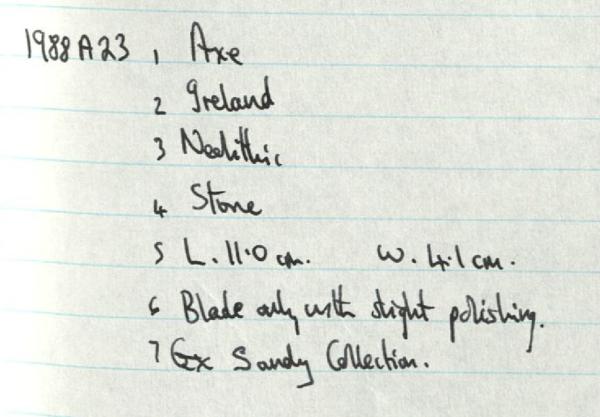 1988A23 1 Axe
2 Ireland
3 Neolithic
4 Stone
5 L. 11.0 cm. W. 4.1 cm.
6 Blade only with slight polishing.
7 Ex Sandy Collection.